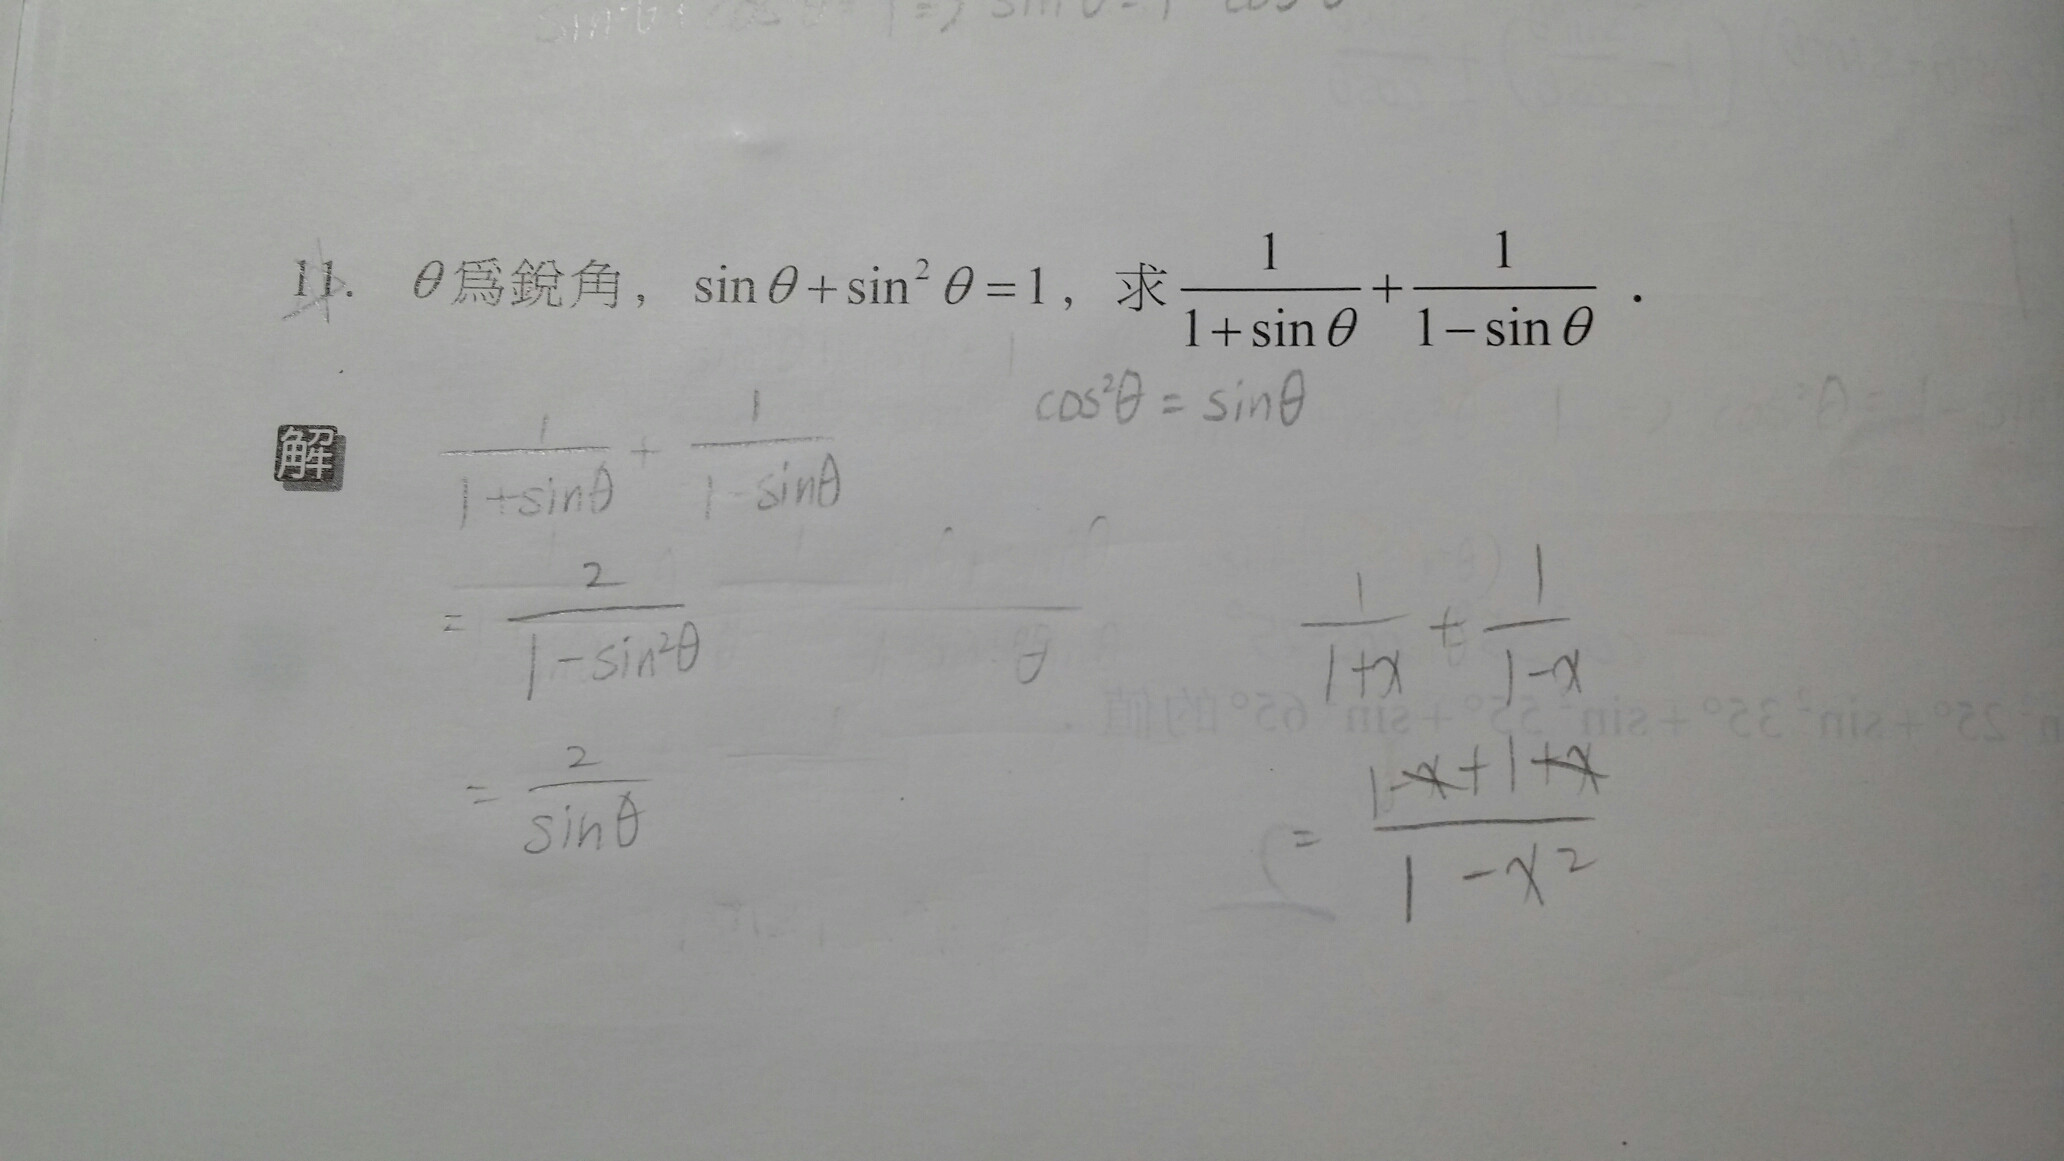 11. θ為銳角，sin θ + sin² θ = 1，求 1/(1+sin θ) + 1/(1−sin θ) .
cos²θ = sinθ
解 1/(1+sinθ) + 1/(1-sinθ)
= 2/(1-sin²θ)
= 2/sinθ
1/(1+x) + 1/(1-x)
= (1-x+1+x)/(1-x²)